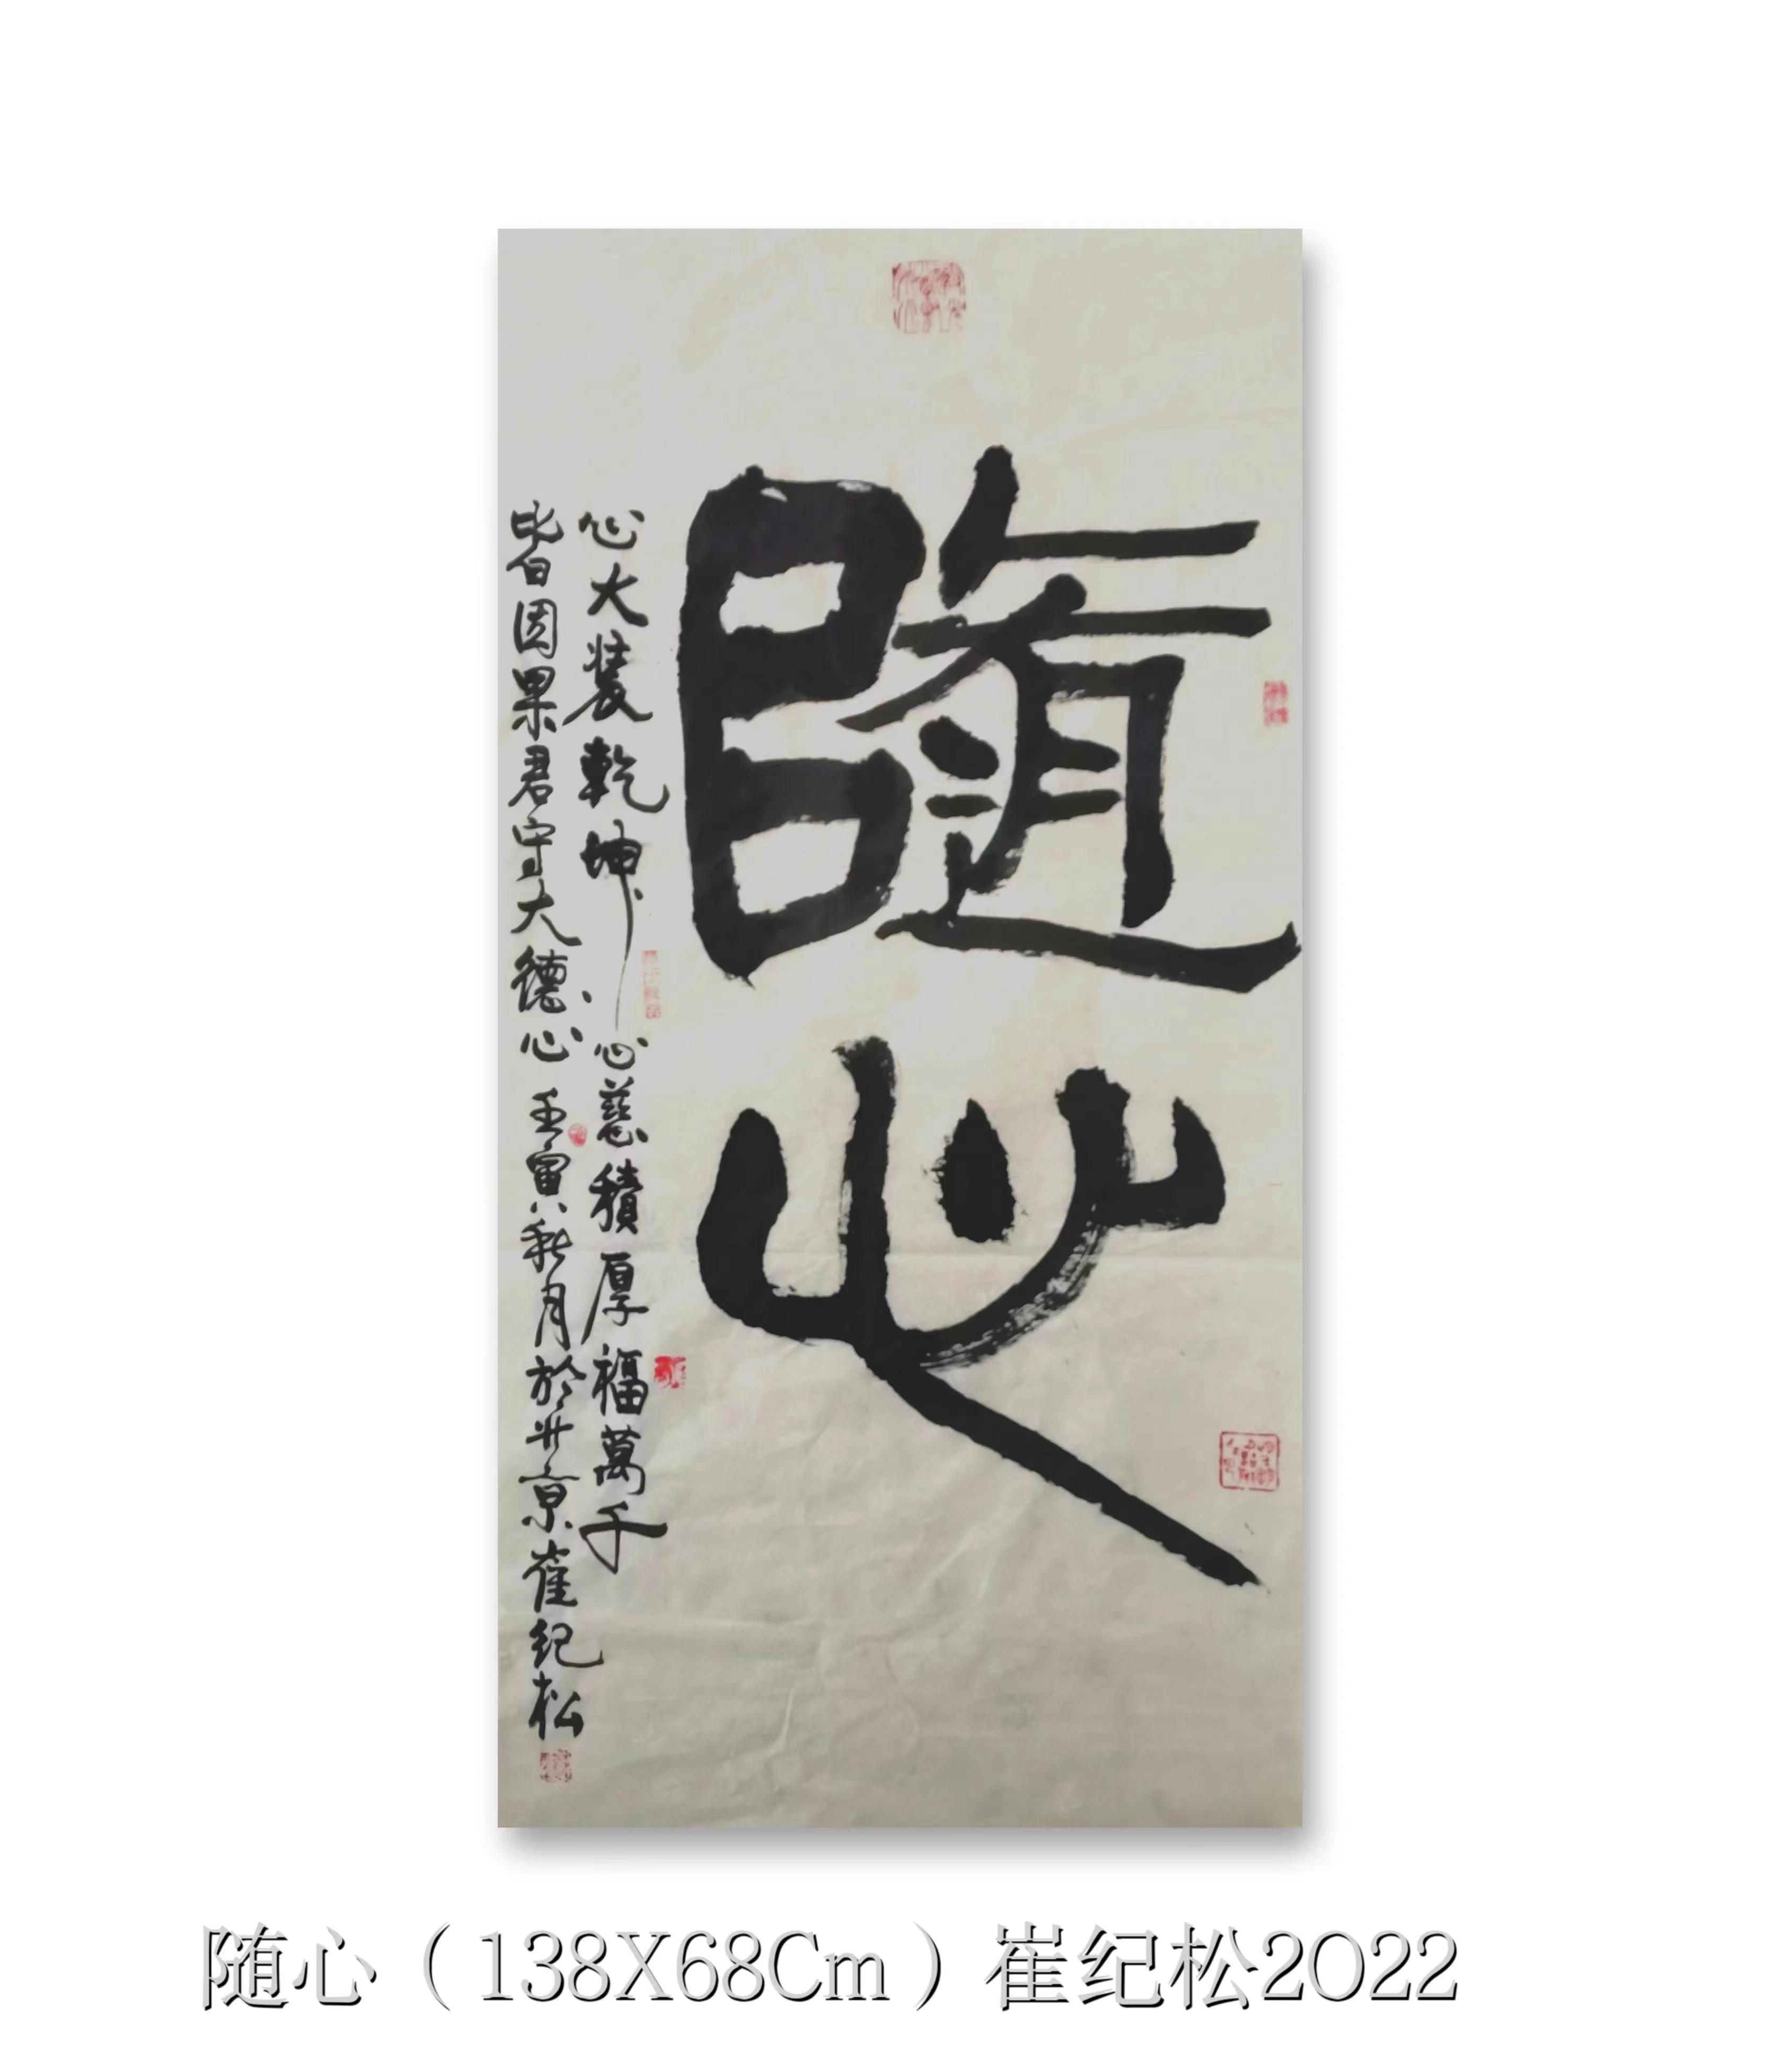 隨心
心大装乾坤心慈積厚福萬千
皆因果君守大德心壬寅秋月於北京崔纪松
随心（138X68Cm）崔纪松2022